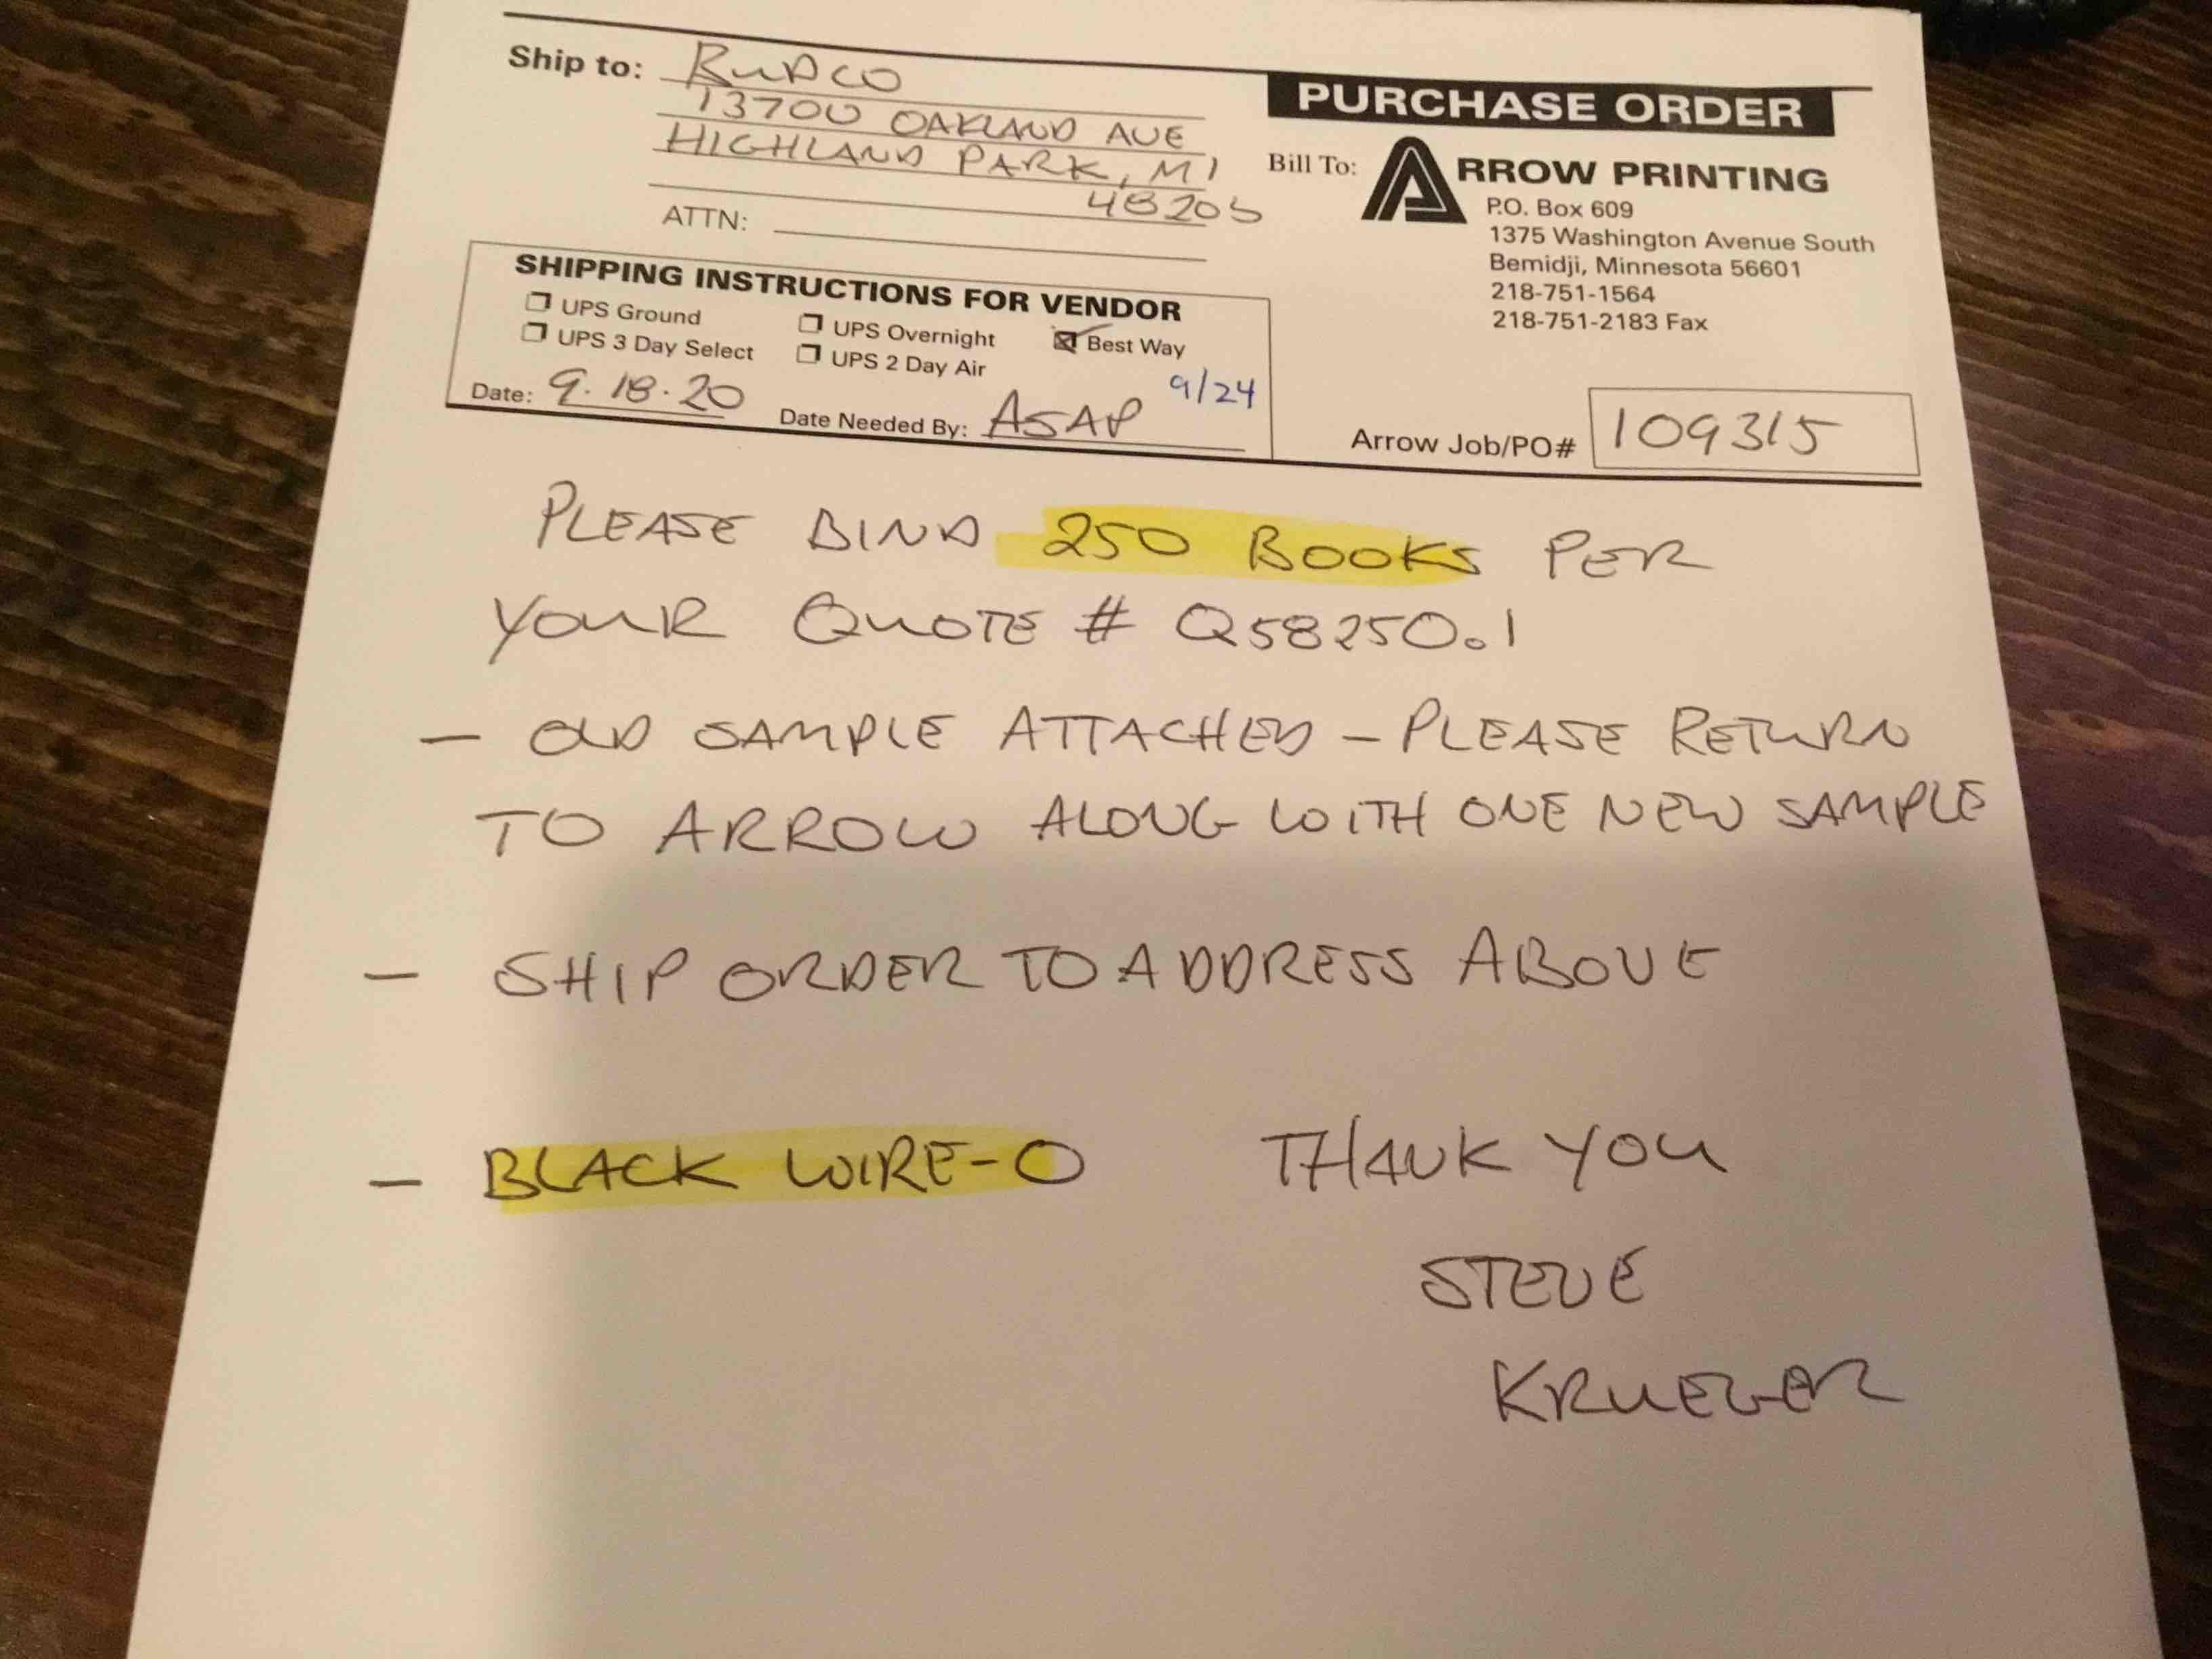 Ship to: RUDCO
13700 OAKLAND AVE
HIGHLAND PARK, MI
48203
ATTN:
PURCHASE ORDER
Bill To: ARROW PRINTING
P.O. Box 609
1375 Washington Avenue South
Bemidji, Minnesota 56601
218-751-1564
218-751-2183 Fax
SHIPPING INSTRUCTIONS FOR VENDOR
UPS Ground UPS Overnight Best Way
UPS 3 Day Select UPS 2 Day Air
9/24
Date: 9.18.20 Date Needed By: ASAP
Arrow Job/PO# 109315
PLEASE BIND 250 BOOKS PER
YOUR QUOTE # Q58250.1
- OLD SAMPLE ATTACHED - PLEASE RETURN
TO ARROW ALONG WITH ONE NEW SAMPLE
- SHIP ORDER TO ADDRESS ABOVE
- BLACK WIRE-O THANK YOU
STEVE
KRUEGER